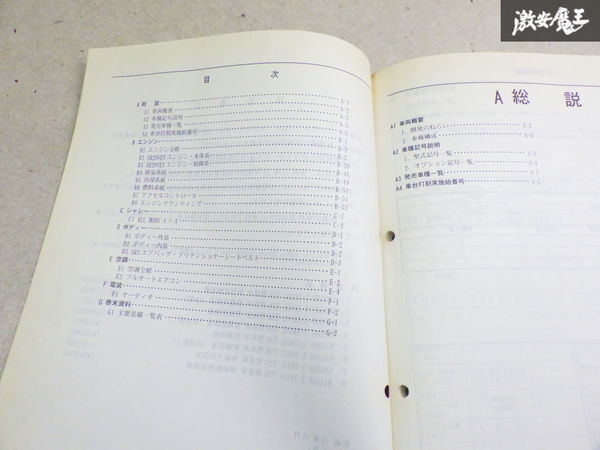 激安魔王
目 次
A 総 説 A-1
A1 車両概要 A-2
A2 車種記号説明
A3 発売車種一覧
A4 車台打刻実施始番号
B エンジン
B1 エンジン全般
B2 SR20VET エンジン・本体系
B3 SR20VET エンジン・制御系
B4 排気系統
B5 冷却系統
B6 燃料系統
B7 アクセルコントロール
B8 エンジンマウンティング
C シャシー C-1
C1 ALL MODE 4×4 C-2
D ボディー D-1
D1 ボディー外装 D-2
D2 ボディー内装 D-2
D3 SRS エアバッグ・プリテンショナーシートベルト D-3
E 空調 E-1
E1 空調全般 E-2
E2 フルオートエアコン E-4
F 電装 F-1
F1 オーディオ F-2
G 巻末資料 G-1
G1 主要装備一覧表 G-2
A 総 説
A1 車両概要
1. 開発のねらい A-2
2. 車種構成 A-3
A2 車種記号説明
1. 型式記号一覧 A-4
2. オプション記号一覧 A-4
A3 発売車種一覧 A-5
A4 車台打刻実施始番号 A-5